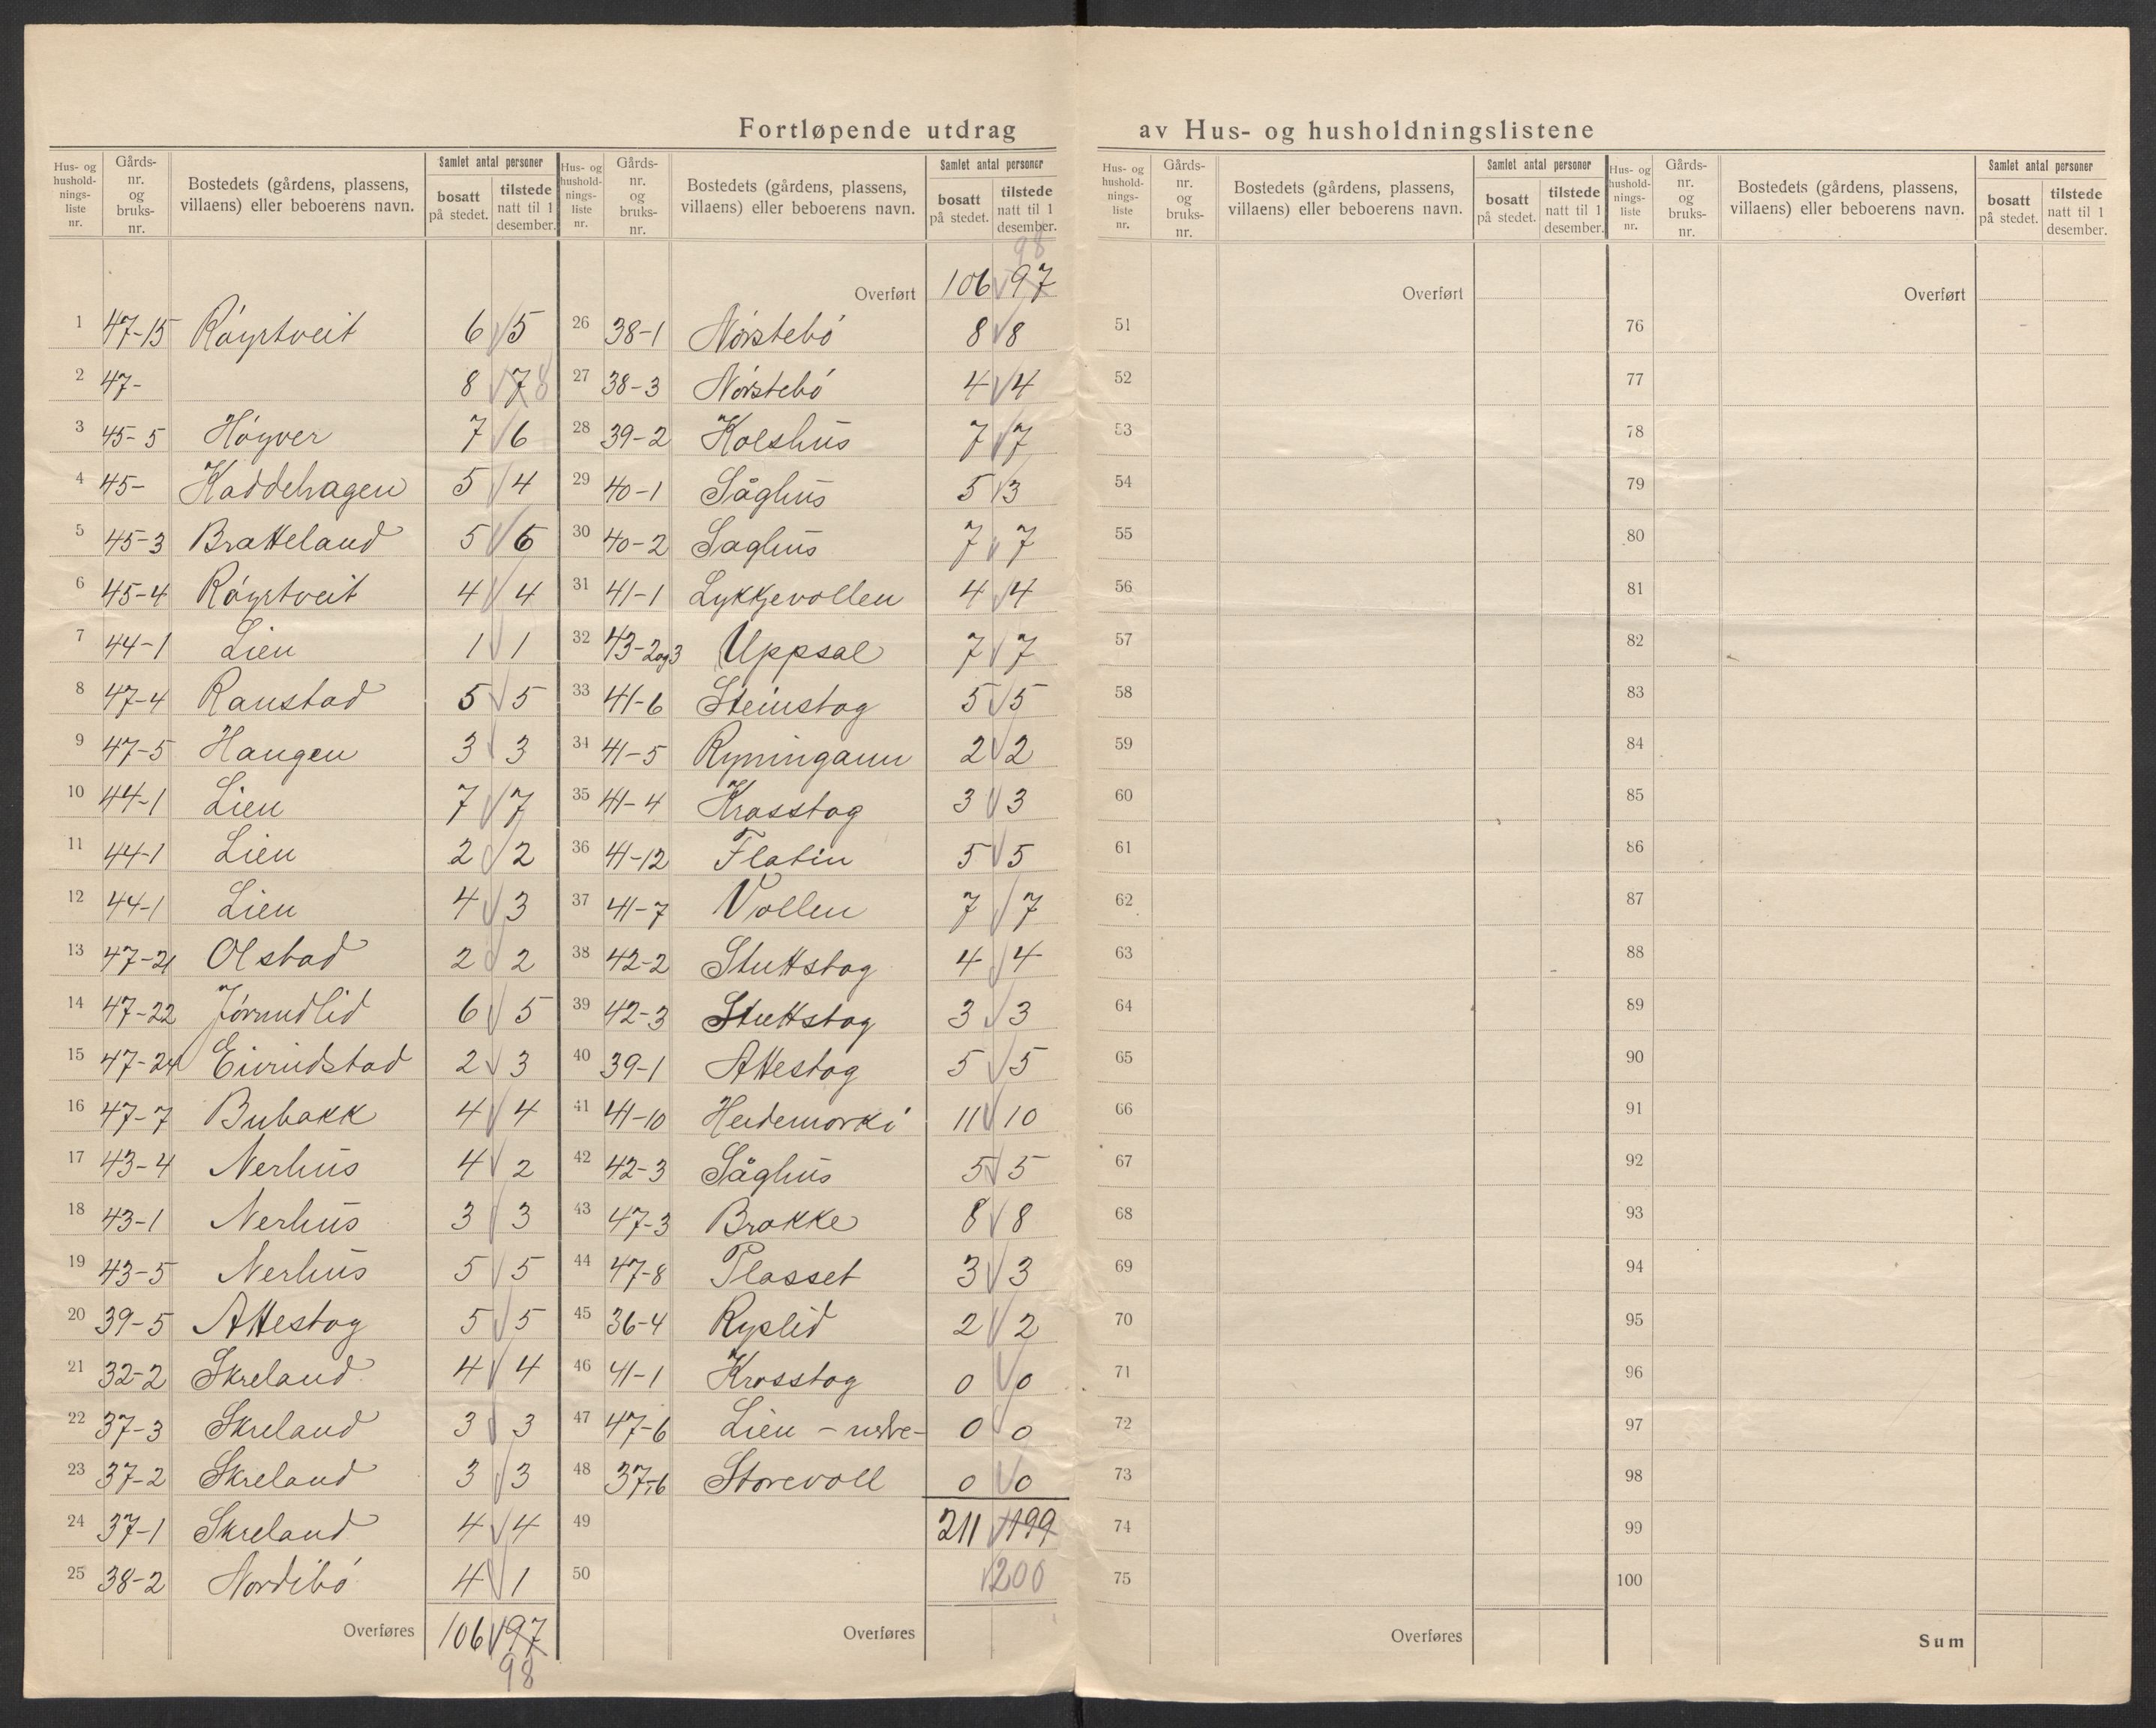 Fortløpende utdrag av Hus- og husholdningslistene
Hus- og husholdnings-liste nr. Gårds-nr. og bruks-nr. Bostedets (gårdens, plassens, villaens) eller beboerens navn. Samlet antal personer bosatt på stedet. tilstede natt til 1 desember.
Hus- og husholdnings-liste nr. Gårds-nr. og bruks-nr. Bostedets (gårdens, plassens, villaens) eller beboerens navn. Samlet antal personer bosatt på stedet. tilstede natt til 1 desember.
1 47-15 Róyrtveit 6 5
2 47- 8 7 8
3 45-5 Hóyver 7 6
4 45- Haddehagen 5 4
5 45-3 Bratteland 5 6
6 45-4 Róyrtveit 4 4
7 44-1 Lien 1 1
8 47-4 Ranstad 5 5
9 47-5 Haugen 3 3
10 44-1 Lien 7 7
11 44-1 Lien 2 2
12 44-1 Lien 4 3
13 47-21 Olstad 2 2
14 47-22 Jórundlid 6 5
15 47-24 Eivindstad 2 3
16 47-7 Bubakk 4 4
17 43-4 Nerhus 4 2
18 43-1 Nerhus 3 3
19 43-5 Nerhus 5 5
20 39-5 Attestog 5 5
21 32-2 Skreland 4 4
22 37-3 Skreland 3 3
23 37-2 Skreland 3 3
24 37-1 Skreland 4 4
25 38-2 Nordibó 4 1
Overføres 106 97
98
98
Overført 106 97
26 38-1 Nórstebó 8 8
27 38-3 Nórstebó 4 4
28 39-2 Kolshus 7 7
29 40-1 Såghus 5 3
30 40-2 Saghus 7 7
31 41-1 Lykkjevollen 4 4
32 43-2og3 Uppsal 7 7
33 41-6 Steinstog 5 5
34 41-5 Ryningann 2 2
35 41-4 Krosstog 3 3
36 41-12 Flatin 5 5
37 41-7 Vollen 7 7
38 42-2 Stuttstog 4 4
39 42-3 Stuttstog 3 3
40 39-1 Attestog 5 5
41 41-10 Heidemorki 11 10
42 42-3 Såghus 5 5
43 47-3 Brokke 8 8
44 47-8 Plasset 3 3
45 36-4 Ryslid 2 2
46 41-1 Krosstog 0 0
47 47-6 Lien - nedre- 0 0
48 37-6 Storevoll 0 0
49 211 199
50 200
Overføres
Hus- og husholdnings-liste nr. Gårds-nr. og bruks-nr. Bostedets (gårdens, plassens, villaens) eller beboerens navn. Samlet antal personer bosatt på stedet. tilstede natt til 1 desember.
Hus- og husholdnings-liste nr. Gårds-nr. og bruks-nr. Bostedets (gårdens, plassens, villaens) eller beboerens navn. Samlet antal personer bosatt på stedet. tilstede natt til 1 desember.
Overført
51
52
53
54
55
56
57
58
59
60
61
62
63
64
65
66
67
68
69
70
71
72
73
74
75
Overføres
Overført
76
77
78
79
80
81
82
83
84
85
86
87
88
89
90
91
92
93
94
95
96
97
98
99
100
Sum